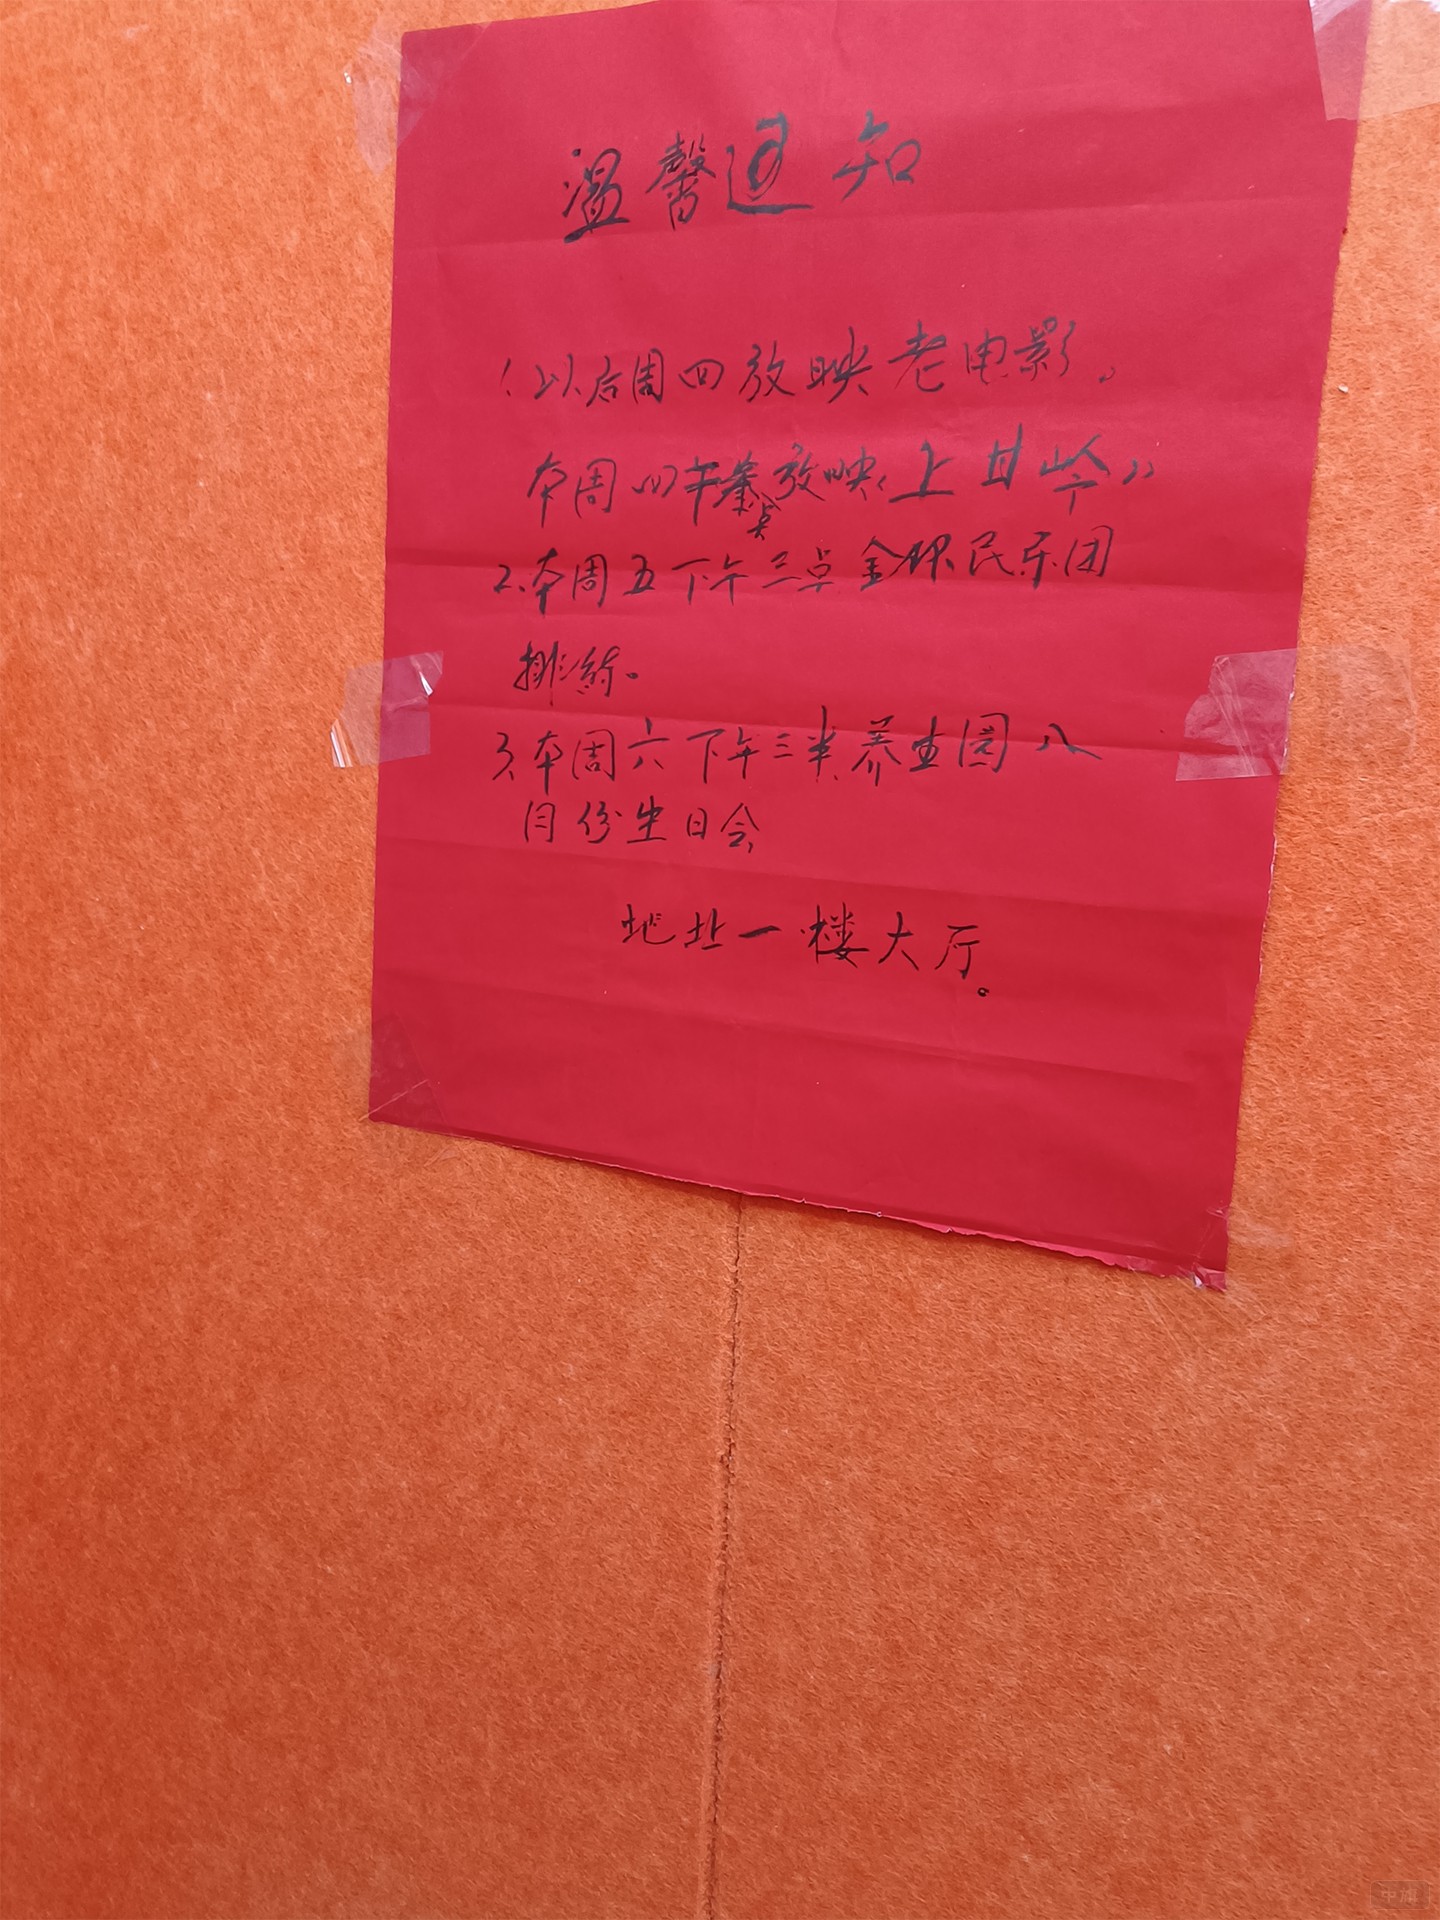 温馨通知
1、以后周四放映老电影。
本周四午放映《上甘岭》
点
2、本周五下午三点金环民乐团
排练。
3、本周六下午三半养生园八
月份生日会
地址一楼大厅。